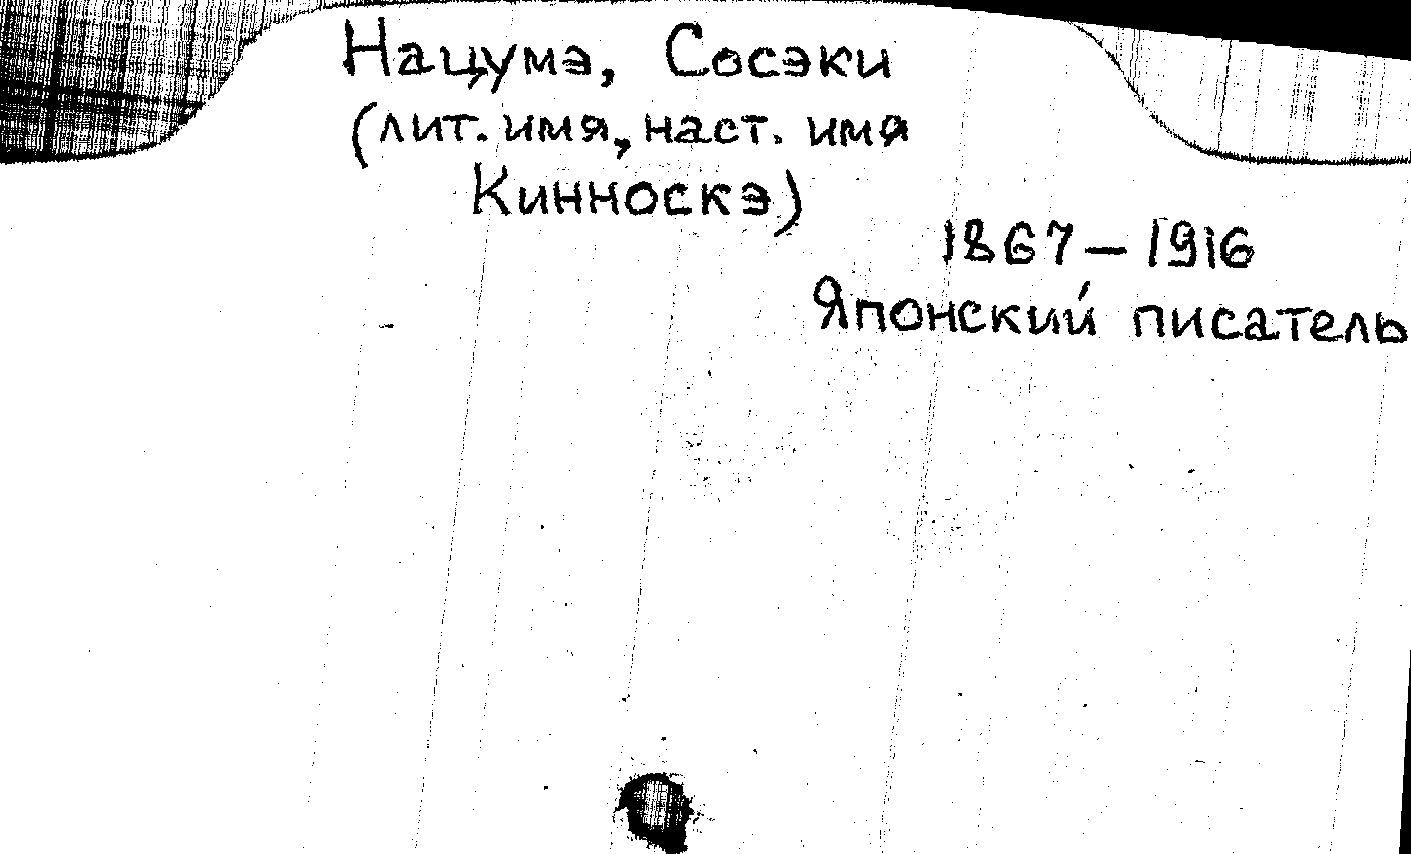 Нацумэ, Сосэки
(лит. имя, наст. имя
Кинноскэ)
1867 – 1916
Японский писатель